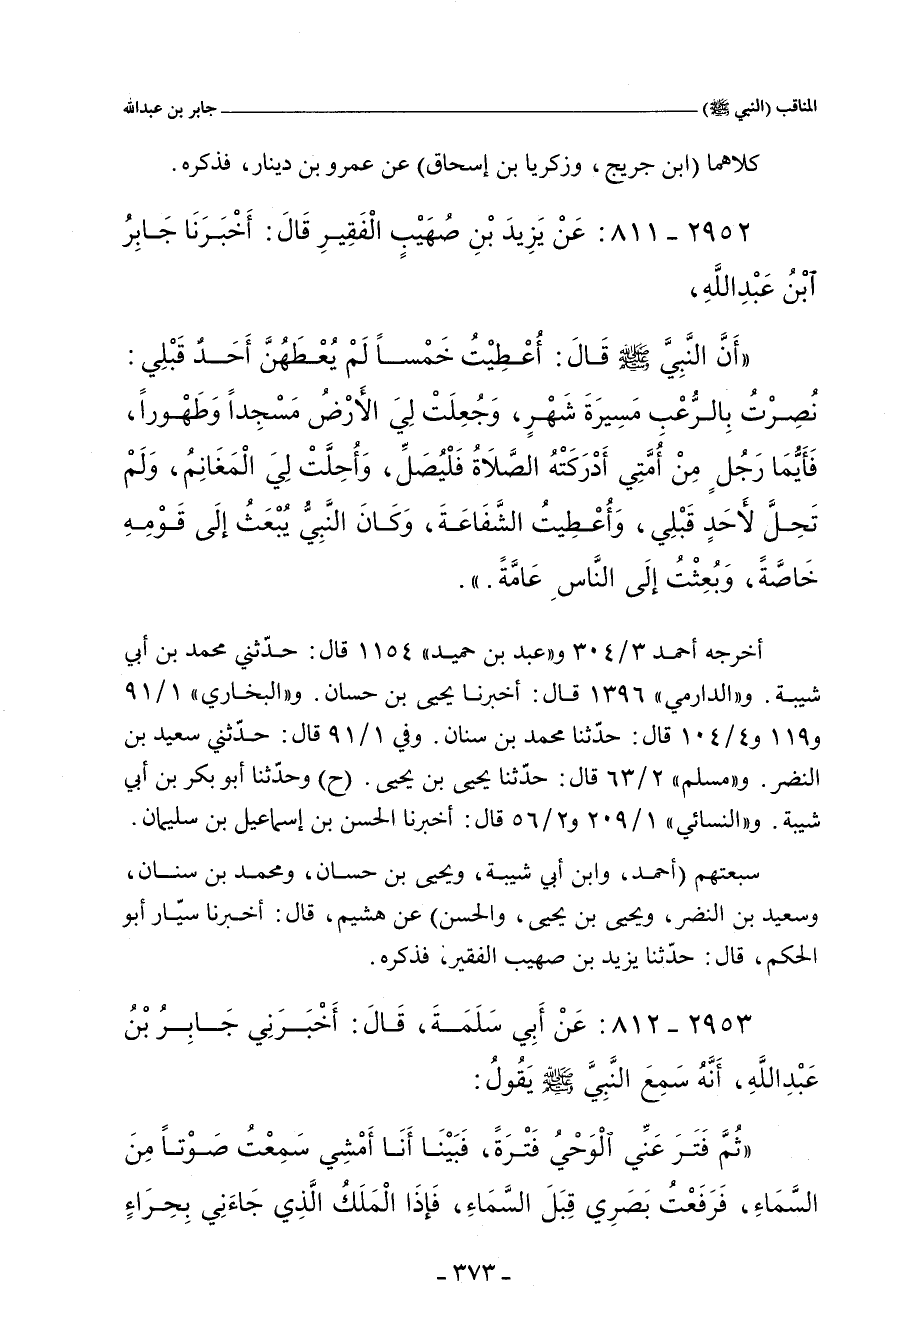 المناقب (النبي ﷺ) ــــــــــ جابر بن عبدالله
كلاهما (ابن جريج، وزكريا بن إسحاق) عن عمرو بن دينار، فذكره.
٢٩٥٢ - ٨١١: عَنْ يَزِيدَ بْنِ صُهَيْبٍ الْفَقِيرِ قَالَ: أَخْبَرَنَا جَابِرُ
آبْنُ عَبْدِاللَّهِ،
«أَنَّ النَّبِيَّ ﷺ قَالَ: أُعْطِيْتُ خَمْساً لَمْ يُعْطَهُنَّ أَحَدٌ قَبْلِي:
نُصِرْتُ بِالرُّعْبِ مَسِيرَةَ شَهْرٍ، وَجُعِلَتْ لِيَ الأَرْضُ مَسْجِداً وَطَهُوراً،
فَأَيُّمَا رَجُلٍ مِنْ أُمَّتِي أَدْرَكَتْهُ الصَّلَاةُ فَلْيُصَلِّ، وَأُحِلَّتْ لِيَ الْمَغَانِمُ، وَلَمْ
تَحِلَّ لأَحَدٍ قَبْلِي، وَأُعْطِيتُ الشَّفَاعَةَ، وَكَانَ النَّبِيُّ يُبْعَثُ إِلَى قَوْمِهِ
خَاصَّةً، وَبُعِثْتُ إِلَى النَّاسِ عَامَّةً.».
أخرجه أحمد ٣/٣٠٤ و«عبد بن حميد» ١١٥٤ قال: حدّثني محمد بن أبي
شيبة. و«الدارمي» ١٣٩٦ قال: أخبرنا يحيى بن حسان. و«البخاري» ٩١/١
و١١٩ و١٠٤/٤ قال: حدّثنا محمد بن سنان. وفي ٩١/١ قال: حدّثني سعيد بن
النضر. و«مسلم» ٦٣/٢ قال: حدّثنا يحيى بن يحيى. (ح) وحدّثنا أبو بكر بن أبي
شيبة. و«النسائي» ٢٠٩/١ و٥٦/٢ قال: أخبرنا الحسن بن إسماعيل بن سليمان.
سبعتهم (أحمد، وابن أبي شيبة، ويحيى بن حسان، ومحمد بن سنان،
وسعيد بن النضر، ويحيى بن يحيى، والحسن) عن هشيم، قال: أخبرنا سيّار أبو
الحكم، قال: حدّثنا يزيد بن صهيب الفقير، فذكره.
٢٩٥٣ - ٨١٢: عَنْ أَبِي سَلَمَةَ، قَالَ: أَخْبَرَنِي جَابِرُ بْنُ
عَبْدِاللَّهِ، أَنَّهُ سَمِعَ النَّبِيَّ ﷺ يَقُولُ:
«ثُمَّ فَتَرَ عَنِّي ٱلْوَحْيُ فَتْرَةً، فَبَيْنَا أَنَا أَمْشِي سَمِعْتُ صَوْتاً مِنَ
السَّمَاءِ، فَرَفَعْتُ بَصَرِي قِبَلَ السَّمَاءِ، فَإِذَا الْمَلَكُ الَّذِي جَاءَنِي بِحِرَاءٍ
- ٣٧٣ -